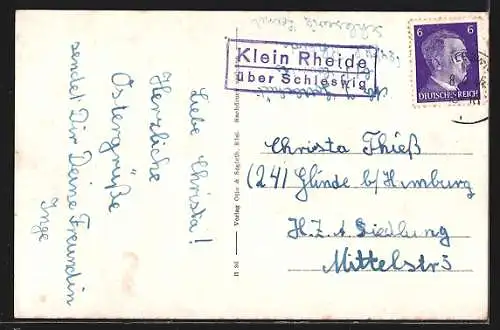 Klein Rheide
über Schleswig
6 6
DEUTSCHES REICH
Liebe Christa!
Herzliche
Ostergrüße
sendet Dir Deine Freundin
Inge
H 84 Verlag Otto &
Christa Thieß
(24) Glinde b/Hamburg
H.Z.A Siedlung
Mittelstr 3